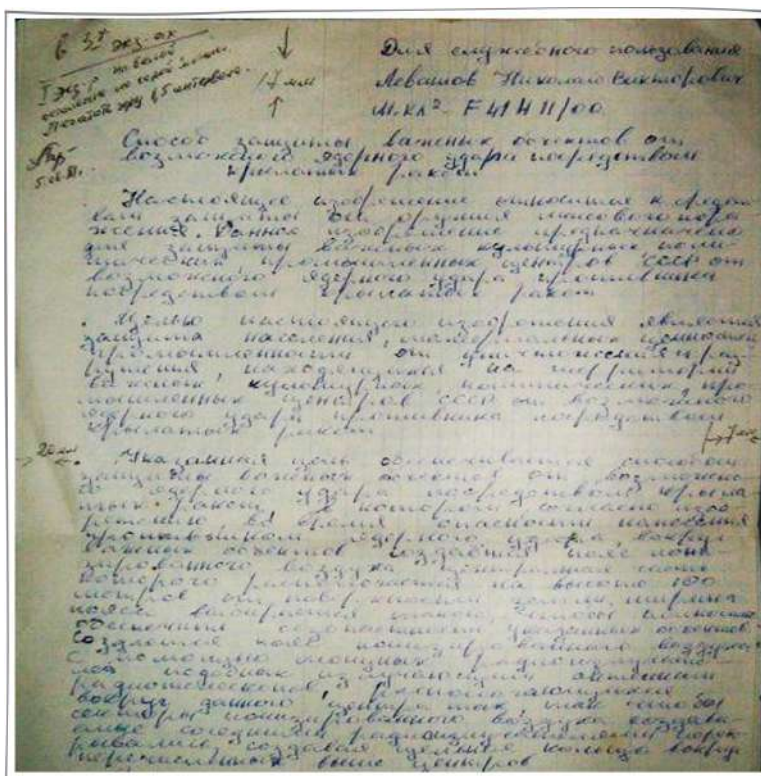 в 3х экз-ах
I экз-р на белой
остальные на серой
Печатать через 1,5 интервала.
17 мм
Для служебного пользования
Левашов Николай Викторович
М.Кл² F 41 H 11/00
Способ защиты важных объектов от
возможного ядерного удара посредством
крылатых ракет
Настоящее изобретение относится к средст
вам защиты от оружия массового пора
жения. Данное изобретение предназначено
для защиты важных культурных поли-
тических промышленных центров СССР от
возможного ядерного удара противника
посредством крылатых ракет
Целью настоящего изобретения является
защита населения, материальных ценностей
промышленности от уничтожения и раз
рушения, находящихся на территории
важных, культурных, политических, про
мышленных центров СССР от возможного
ядерного удара противника посредством
крылатых ракет
20 мм
7 мм
Указанная цель обеспечивается способом
защиты важных объектов от возможно
го ядерного удара посредством крыла
тых ракет, в котором согласно изоб
ретению во время опасности нанесения
противником ядерного удара, вокруг
важных объектов создаётся пояс иони
зированного воздуха центральная часть
которого располагается на высоте 100
метров от поверхности земли, ширина
пояса выбирается такой, чтобы
обеспечить безопасность указанных объектов.
Создаётся пояс ионизированного воздуха
с помощью мощных радиоизлучате
лей подобных излучающим антеннам
радиотелескопов, располагающихся
вокруг данного центра так, чтобы
секторы ионизированного воздуха создава
емые соседними радиоизлучателями перек
рывались, создавая цельные кольца вокруг
перечисленных выше центров